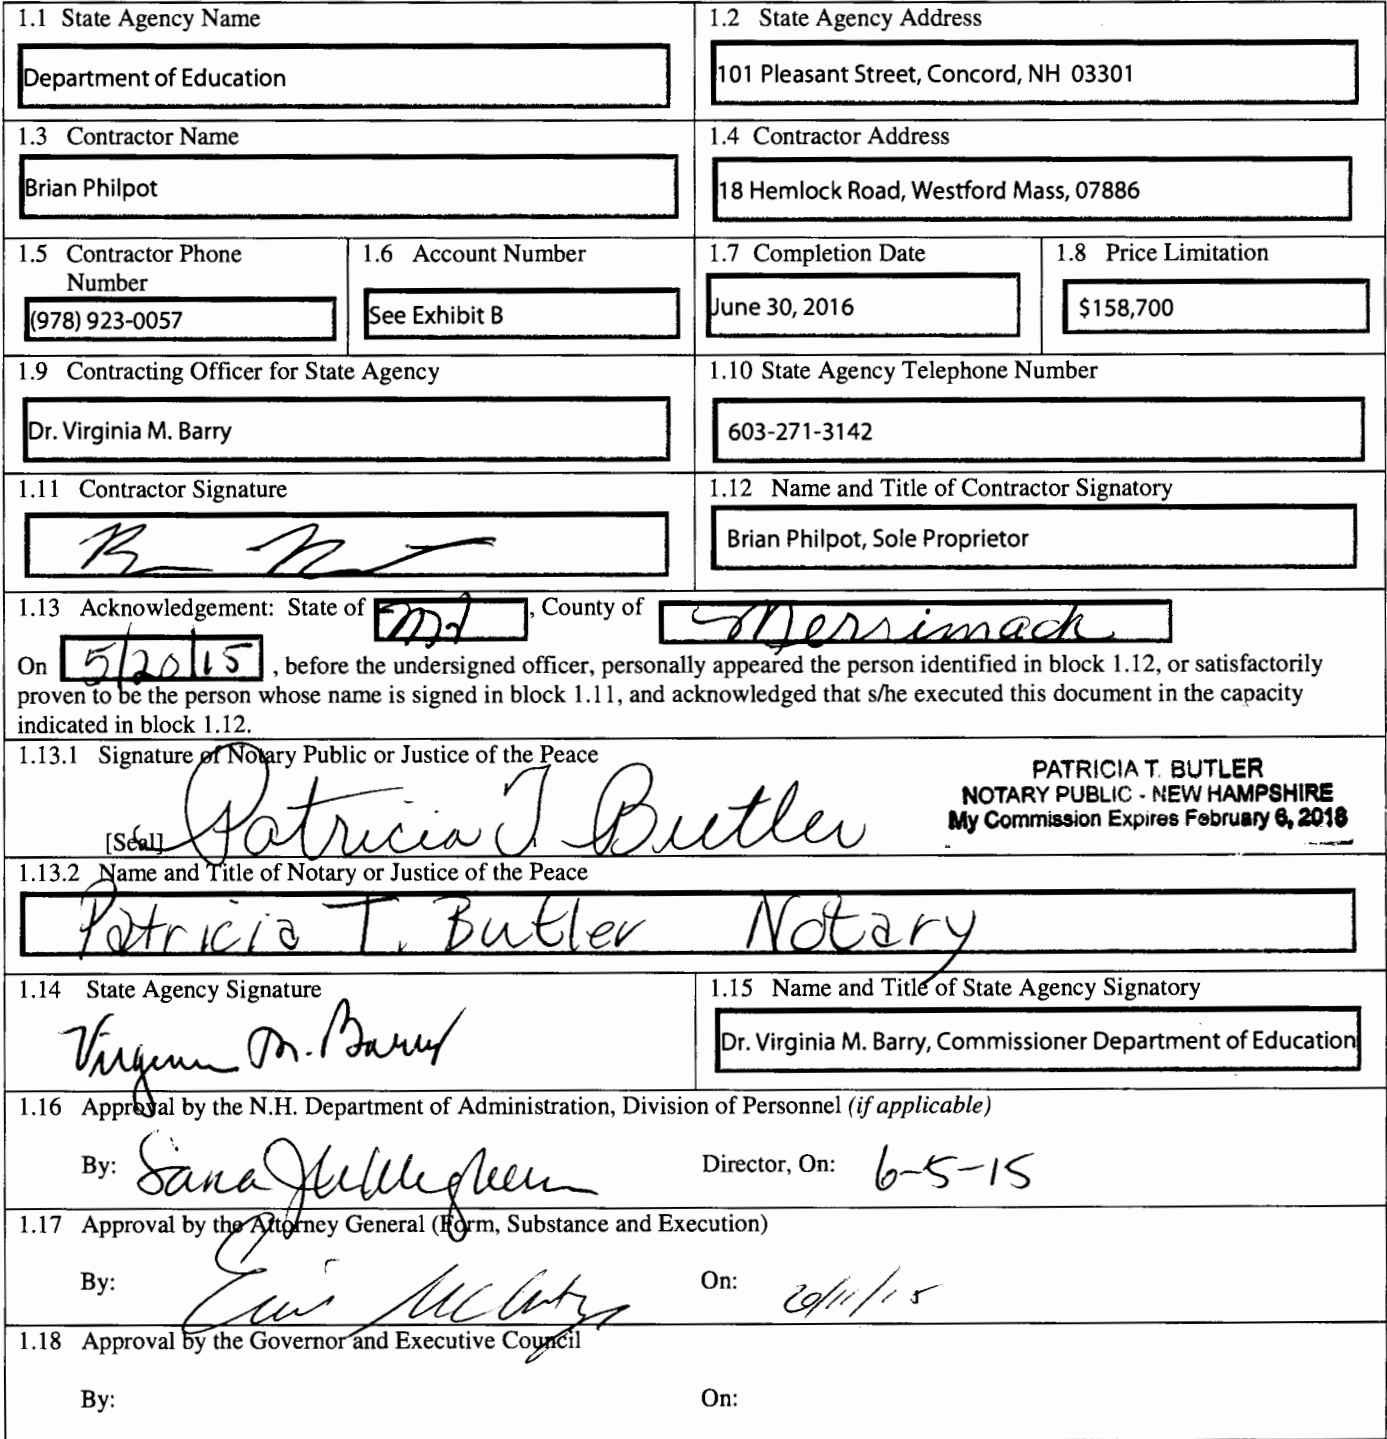 1.1 State Agency Name
Department of Education
1.2 State Agency Address
101 Pleasant Street, Concord, NH 03301
1.3 Contractor Name
Brian Philpot
1.4 Contractor Address
18 Hemlock Road, Westford Mass, 07886
1.5 Contractor Phone
Number
(978) 923-0057
1.6 Account Number
See Exhibit B
1.7 Completion Date
June 30, 2016
1.8 Price Limitation
$158,700
1.9 Contracting Officer for State Agency
Dr. Virginia M. Barry
1.10 State Agency Telephone Number
603-271-3142
1.11 Contractor Signature
1.12 Name and Title of Contractor Signatory
Brian Philpot, Sole Proprietor
1.13 Acknowledgement: State of , County of Merrimack
On 5/20/15 , before the undersigned officer, personally appeared the person identified in block 1.12, or satisfactorily
proven to be the person whose name is signed in block 1.11, and acknowledged that s/he executed this document in the capacity
indicated in block 1.12.
1.13.1 Signature of Notary Public or Justice of the Peace
Patricia T Butler
[Seal]
PATRICIA T. BUTLER
NOTARY PUBLIC - NEW HAMPSHIRE
My Commission Expires February 6, 2018
1.13.2 Name and Title of Notary or Justice of the Peace
Patricia T. Butler Notary
1.14 State Agency Signature
Virginia M. Barry
1.15 Name and Title of State Agency Signatory
Dr. Virginia M. Barry, Commissioner Department of Education
1.16 Approval by the N.H. Department of Administration, Division of Personnel (if applicable)
By: Director, On: 6-5-15
1.17 Approval by the Attorney General (Form, Substance and Execution)
By: On:
1.18 Approval by the Governor and Executive Council
By: On: